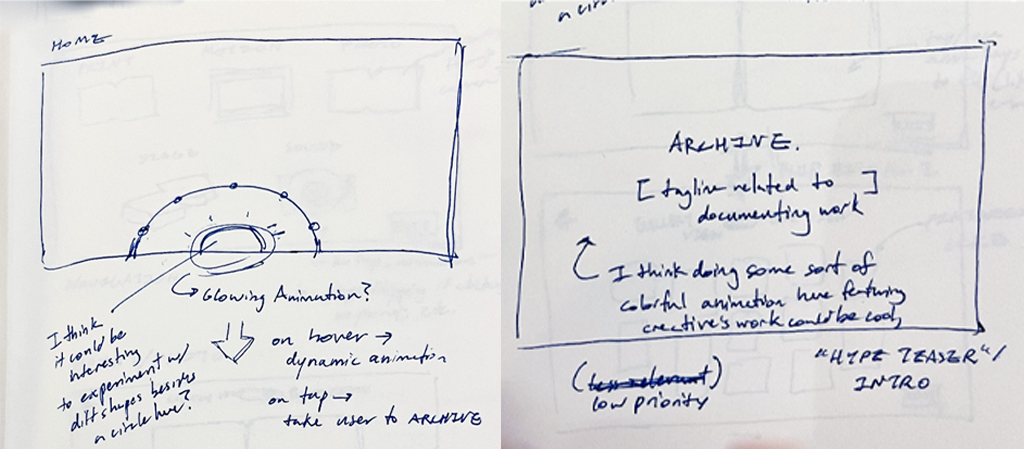 HOME
Glowing Animation?
I think
it could be
interesting
to experiment w/
diff shapes besides
a circle here?
on hover →
dynamic animation
on tap →
take user to ARCHIVE
ARCHIVE.
[tagline related to]
documenting work
I think doing some sort of
colorful animation here featuring
creative's work could be cool,
(less relevant)
low priority
"HYPE TEASER"/
INTRO